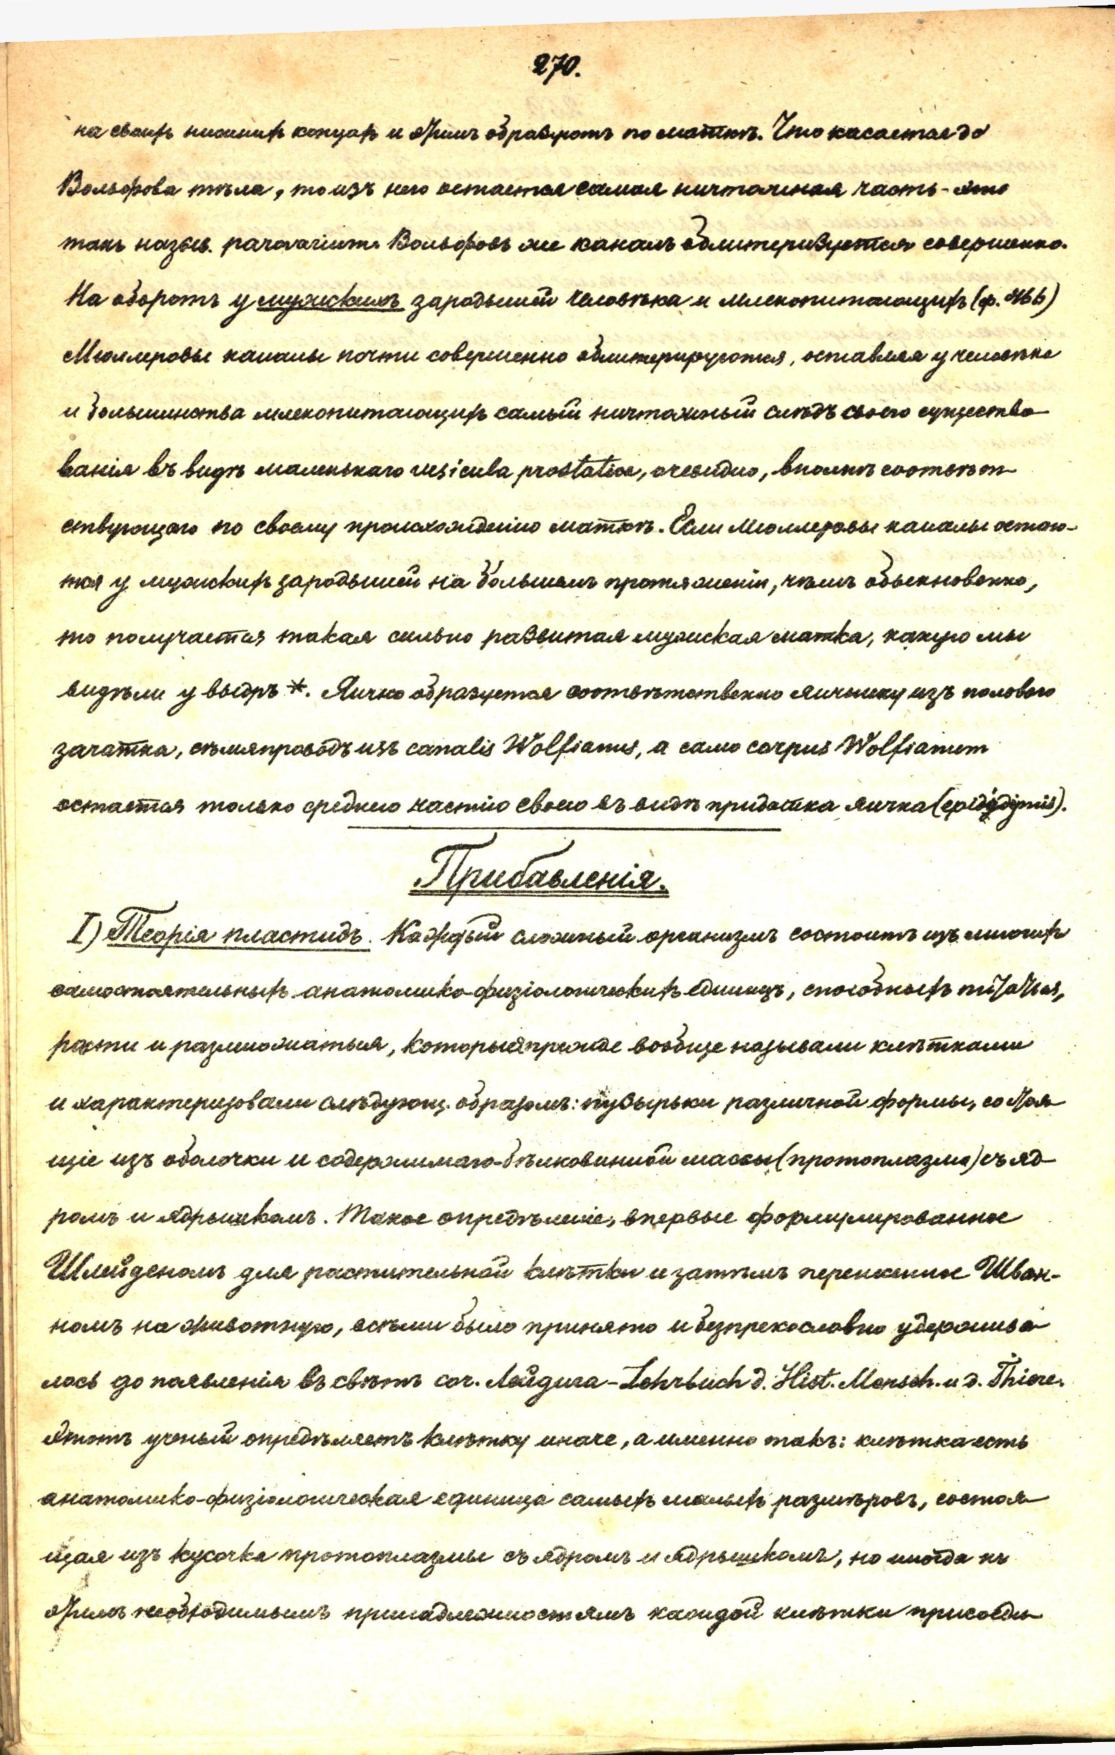 270.
на своихъ нижнихъ концахъ и этимъ образуютъ по маткѣ. Что касается до
Вольфова тѣла, то изъ него остается самая ничтожная часть - это
такъ назыв. parovarium. Вольфовъ же каналъ облитерируется совершенно.
На оборотъ у мужскихъ зародышей человѣка и млекопитающихъ (ф. 466)
Мюллеровы каналы почти совершенно облитерируются, оставляя у человѣка
и большинства млекопитающихъ самый ничтожный слѣдъ своего существо
ванія въ видѣ маленькаго vesicula prostatica, очевидно, вполнѣ соотвѣт
ствующаго по своему происхожденію маткѣ. Если Мюллеровы каналы остаю-
тся у мужскихъ зародышей на большемъ протяженіи, чѣмъ обыкновенно,
то получается такая сильно развитая мужская матка, какую мы
видѣли у выдръ *. Яичко образуется соотвѣтственно яичнику изъ полового
зачатка, сѣмяпроводъ изъ canalis Wolfianus, а само corpus Wolfianum
остается только среднею частію своею въ видѣ придатка яичка (epididymis).
Прибавленія.
I) Теорія пластидъ. Каждый сложный организмъ состоитъ изъ многихъ
самостоятельныхъ анатомико-физіологическихъ единицъ, способныхъ питаться,
расти и размножаться, которыя прежде вообще называли клѣтками
и характеризовали слѣдующ. образомъ: пузырьки различной формы, состоя
щіе изъ оболочки и содержимаго-бѣлковинной массы (протоплазма) съ яд
ромъ и ядрышкомъ. Такое опредѣленіе, впервые формулированное
Шлейденомъ для растительной клѣтки и затѣмъ перенесенное Шван-
номъ на животную, всѣми было принято и безпрекословно удержива
лось до появленія въ свѣтъ соч. Лейдига - Lehrbuch d. Hist. Mensch. u d. Thiere.
Этотъ ученый опредѣляетъ клѣтку иначе, а именно такъ: клѣтка есть
анатомико-физіологическая единица самыхъ малыхъ размѣровъ, состоя
щая изъ кусочка протоплазмы съ ядромъ и ядрышкомъ, но иногда къ
этимъ необходимымъ принадлежностямъ каждой клѣтки присоеди